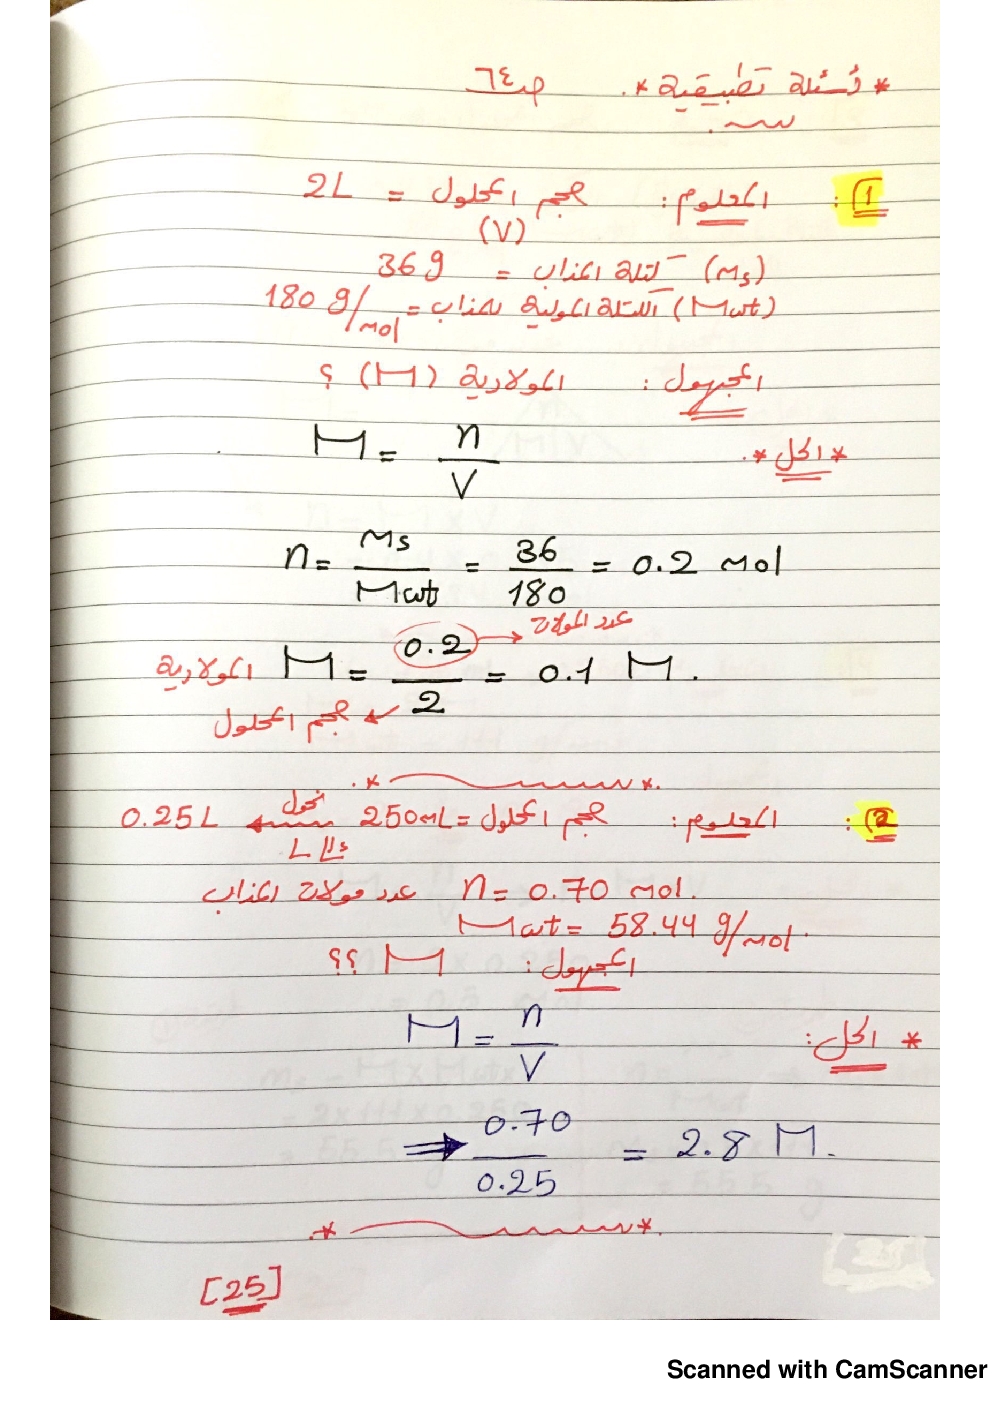 * أسئلة تطبيقية *. ص٦٤
1: المعلوم: حجم المحلول = 2L
(V)
(Ms) كتلة المذاب = 36 g
(Mwt) الكتلة المولية للمذاب = 180 g/mol
المجهول: المولارية (M) ؟
* الحل *.
M = n / V
n = Ms / Mwt = 36 / 180 = 0.2 mol
عدد المولات
المولارية M = 0.2 / 2 = 0.1 M.
حجم المحلول
2: المعلوم: حجم المحلول = 250mL نحول إلى L 0.25L
n = 0.70 mol. عدد مولات المذاب
Mwt = 58.44 g/mol.
المجهول: M ؟؟
* الحل:
M = n / V
⇒ 0.70 / 0.25 = 2.8 M.
[25]
Scanned with CamScanner